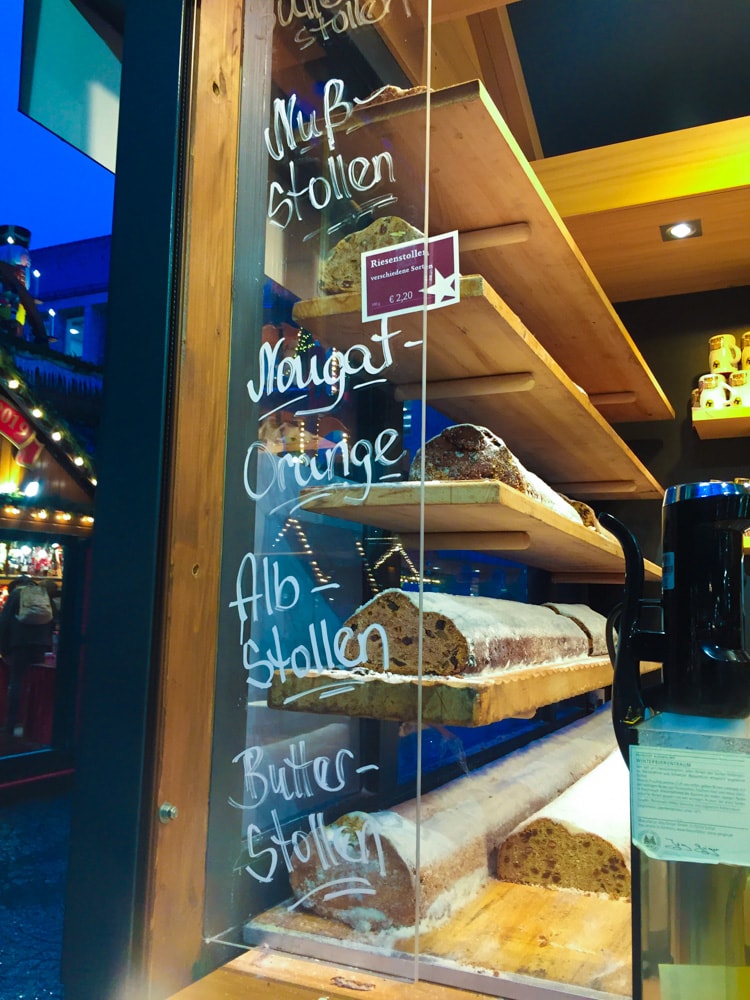 Stollen
Nuß-
Stollen
Riesenstollen
verschiedene Sorten
€ 2,20
Nougat-
Orange
Alb-
Stollen
Butter-
Stollen